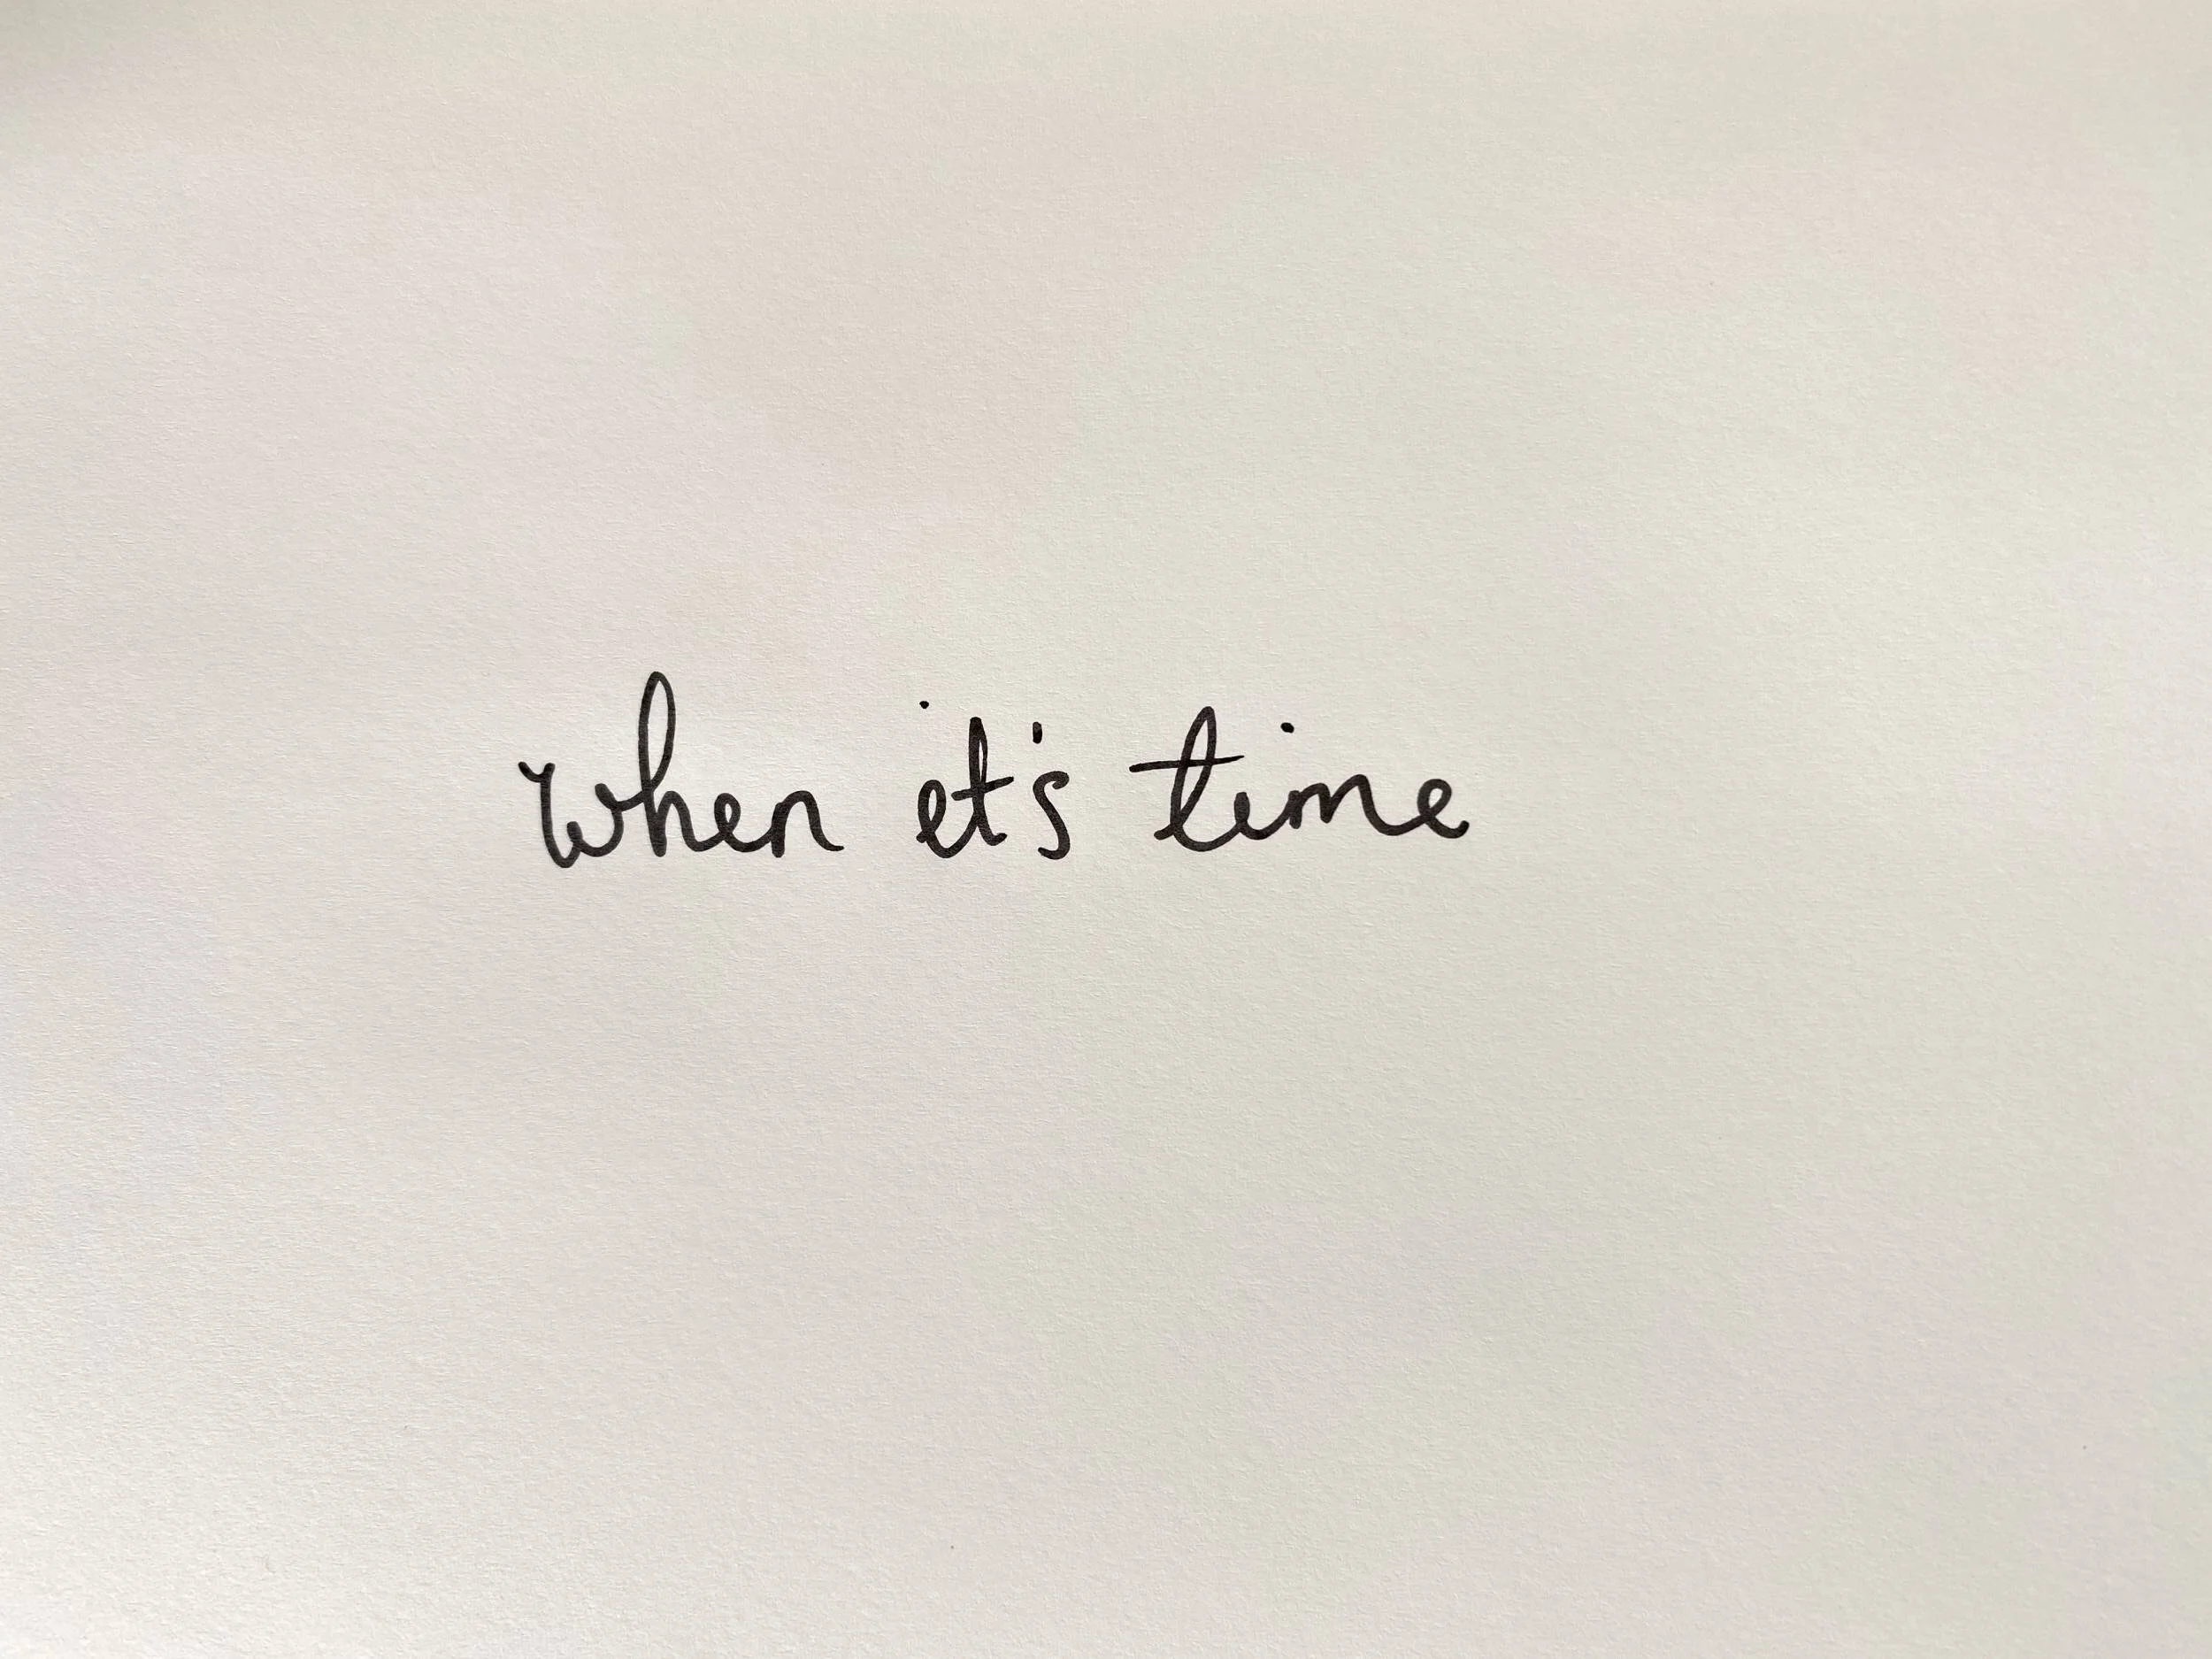 when it's time